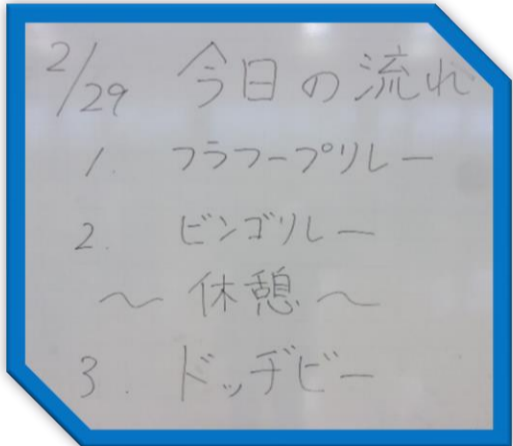 2/29 今日の流れ
1. フラフープリレー
2. ビンゴリレー
～ 休憩 ～
3. ドッヂビー